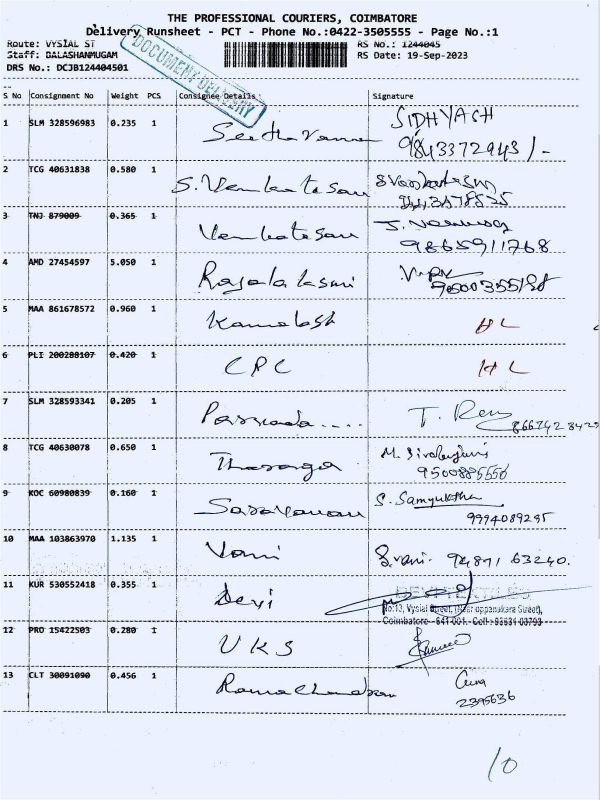 THE PROFESSIONAL COURIERS, COIMBATORE
Delivery Runsheet - PCT - Phone No.:0422-3505555 - Page No.:1
Route: VYSIAL ST RS No.: 1244045
Staff: BALASHANMUGAM RS Date: 19-Sep-2023
DRS No.: DCJB124404501
DOCUMENT DELIVERY
S No Consignment No Weight PCS Consignee Details Signature
1 SLM 328596983 0.235 1 Seetharaman SIDHYASH
9843372943/-
2 TCG 40631838 0.580 1 S. Venkatesan
3 TNJ 879009 0.365 1 Venkatesan
9865911768
4 AMD 27454597 5.050 1 Rajalakshmi
5 MAA 861678572 0.960 1 Kamalesh HL
6 PLI 200288107 0.420 1 CPC HL
7 SLM 328593341 0.205 1
8 TCG 40630078 0.650 1 Tharaga
9 KOC 60980839 0.160 1 Saravanan S. Samyuktha
9994089295
10 MAA 103863970 1.135 1 Vani S.vani. 94871 63240.
11 KUR 530552418 0.355 1 Devi
No:13, Vysial Street,
Coimbatore - 641 001. Cell: 93631 03793
12 PRO 15422503 0.280 1 UKS
13 CLT 30091090 0.456 1 Ramachandran
2395636
10